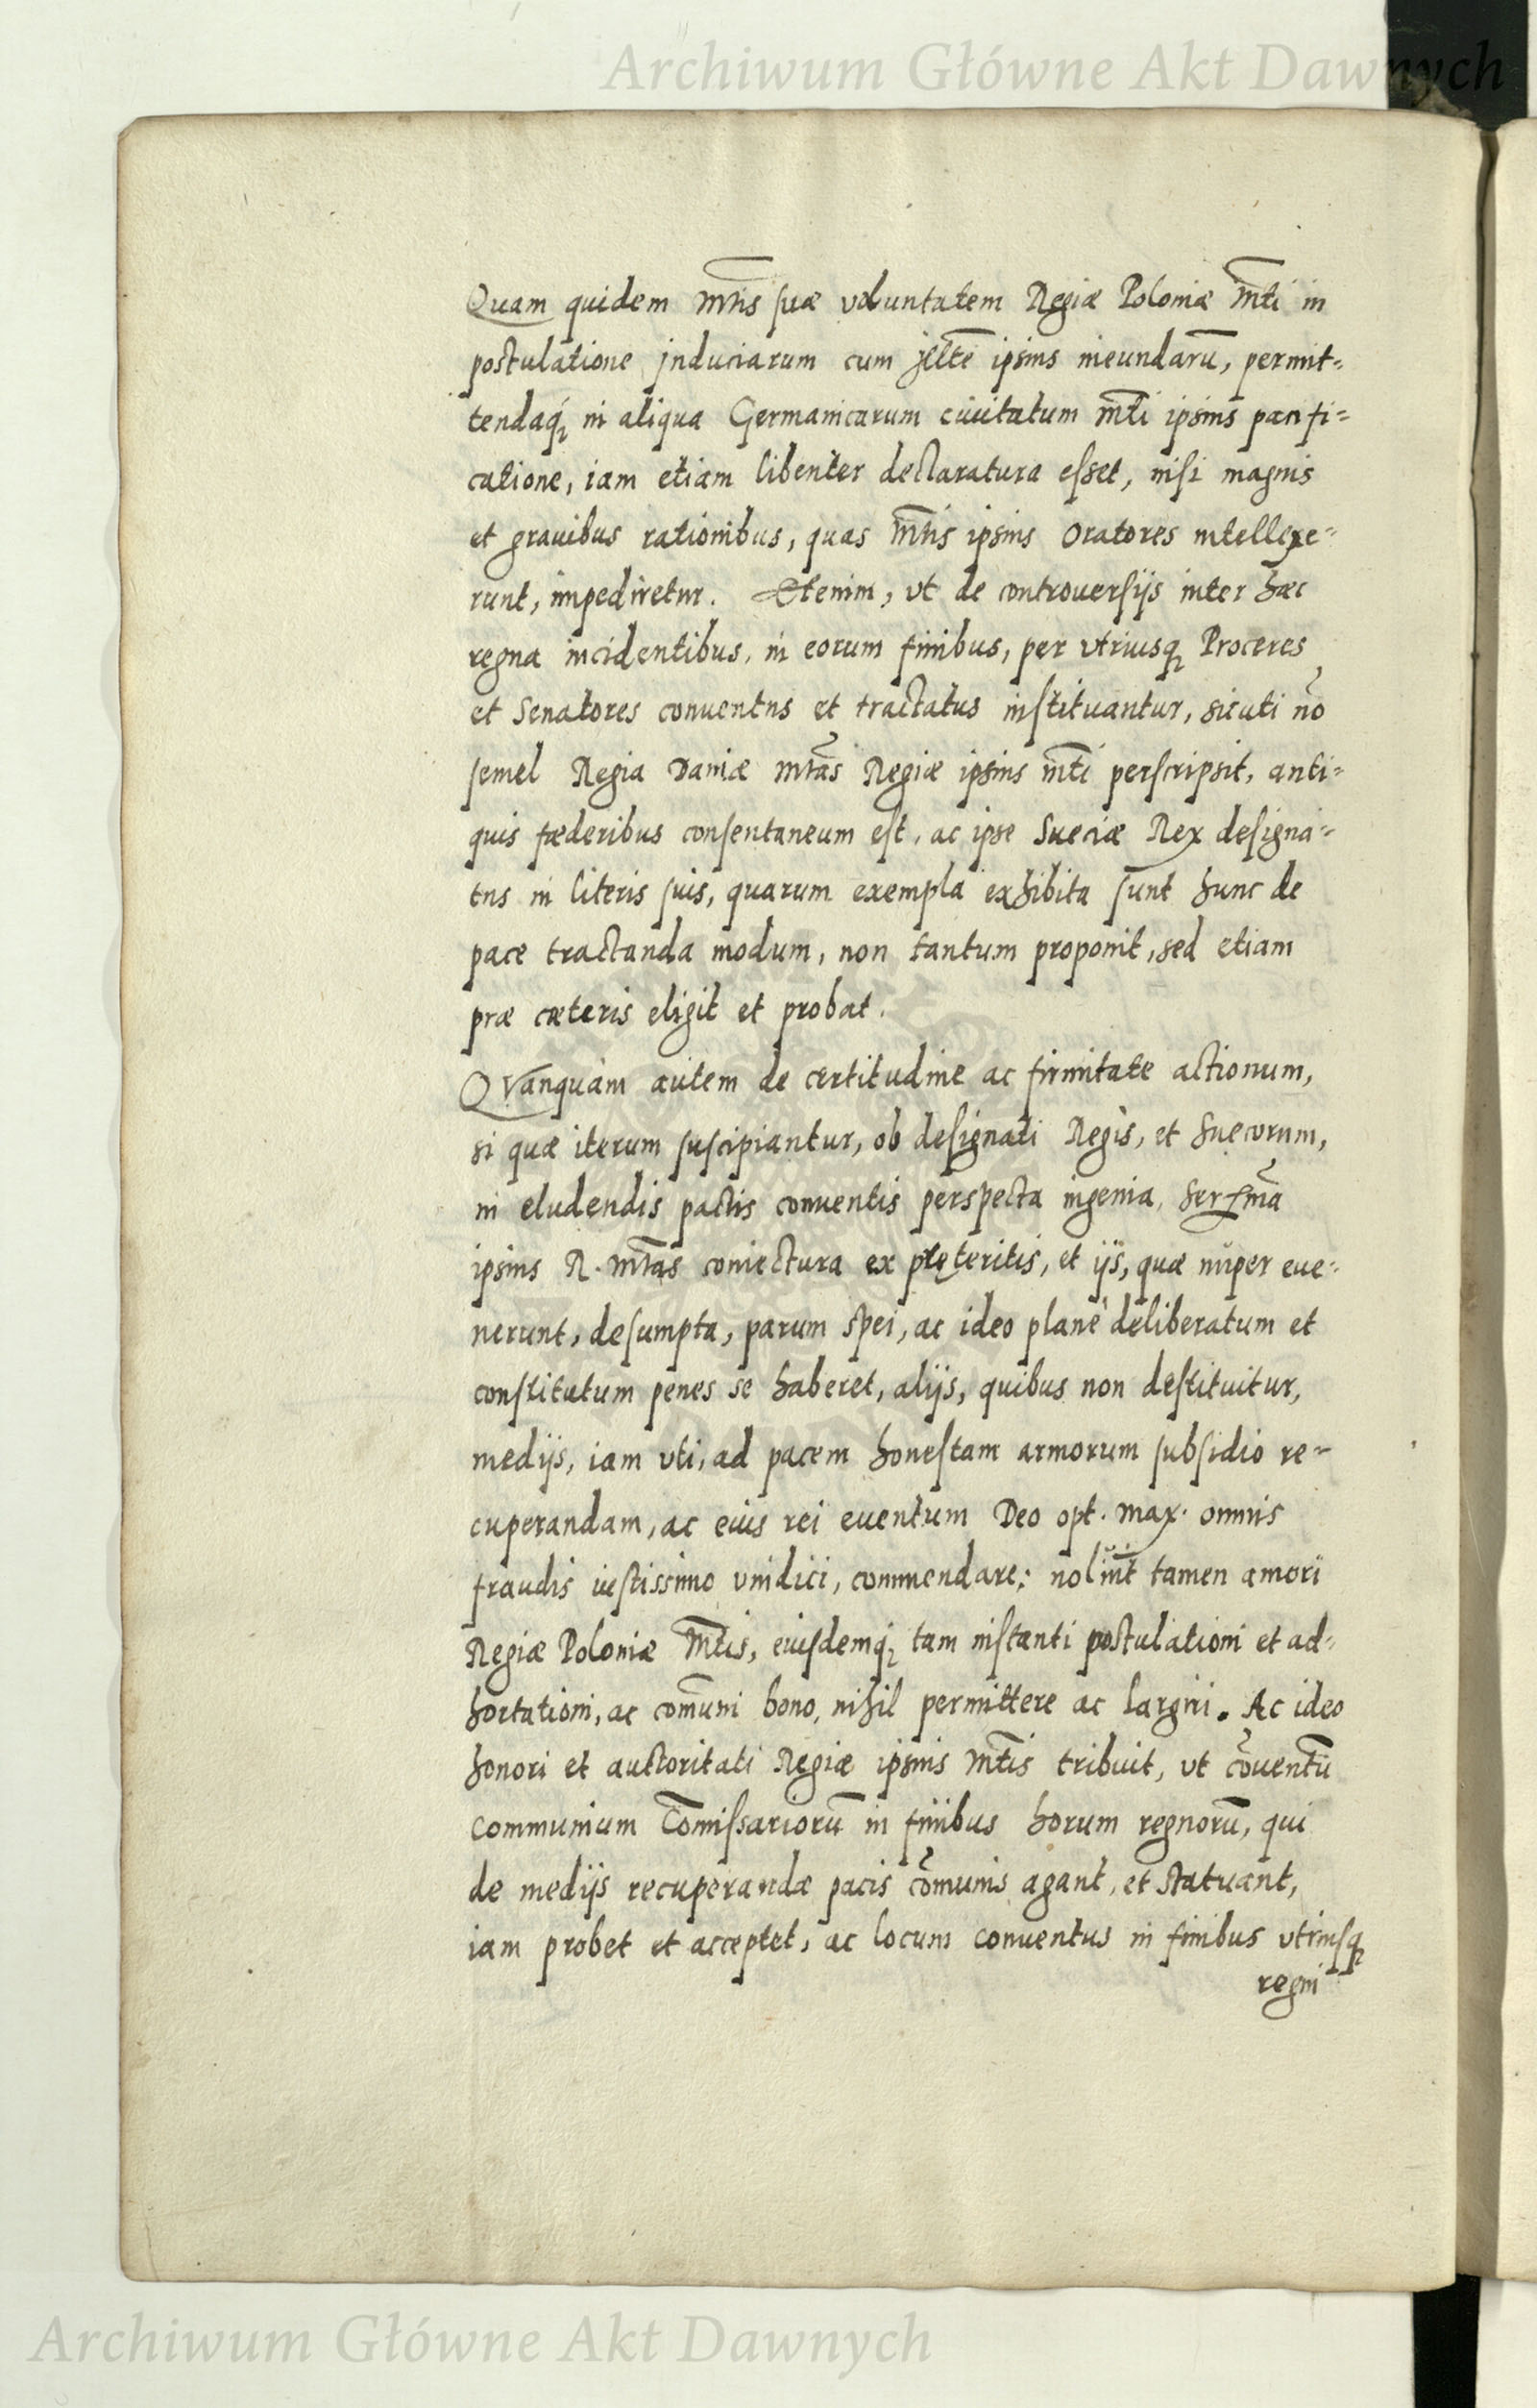 Archiwum Główne Akt Dawnych
Quam quidem Mtis suæ voluntatem Regiæ Poloniæ Mti in
postulatione induciarum cum ipsius ineundarū, permit-
tendaq; in aliqua Germanicarum civitatum Mti ipsius pacifi-
catione, iam etiam libenter declaratura esset, nisi magnis
et grauibus rationibus, quas Mtis ipsius Oratores intellexe-
runt, impediretur. Etenim, vt de controuersijs inter hæc
regna incidentibus, in eorum finibus, per vtriusq; Proceres
et Senatores conuentus et tractatus instituantur, sicuti nō
semel Regia Daniæ Mtas Regiæ ipsius Mti perscripsit, anti-
quis fæderibus consentaneum est, ac ipse Sueciæ Rex designa-
tus in literis suis, quarum exempla exhibita sunt hunc de
pace tractanda modum, non tantum proponit, sed etiam
præ cæteris eligit et probat.
QVanquàm autem de certitudine ac firmitate actionum,
si quæ iterum suscipiantur, ob designati Regis, et Suecorum,
in eludendis pactis conuentis perspecta ingenia, Serᵐᵃ
ipsius R. Mtas coniectura ex pręteritis, et ijs, quæ nuper eue-
nerunt, desumpta, parum spei, ac ideo planè deliberatum et
constitutum penes se haberet, alijs, quibus non destituitur,
medijs, iam vti, ad pacem honestam armorum subsidio re-
cuperandam, ac eius rei euentum Deo opt. max. omnis
fraudis iustissimo vindici, commendare; tamen amori
Regiæ Poloniæ Mtis, eiusdemq; tam instanti postulationi et ad-
hortationi, ac comūni bono, nihil permittere ac largiri. Ac ideo
honori et auctoritati Regiæ ipsius Mtis tribuit, vt cōuentū
communium Comissariorū in finibus horum regnorū, qui
de medijs recuperandæ pacis cōmunis agant, et statuant,
iam probet et acceptet, ac locum conuentus in finibus vtriusq;
regni
Archiwum Główne Akt Dawnych